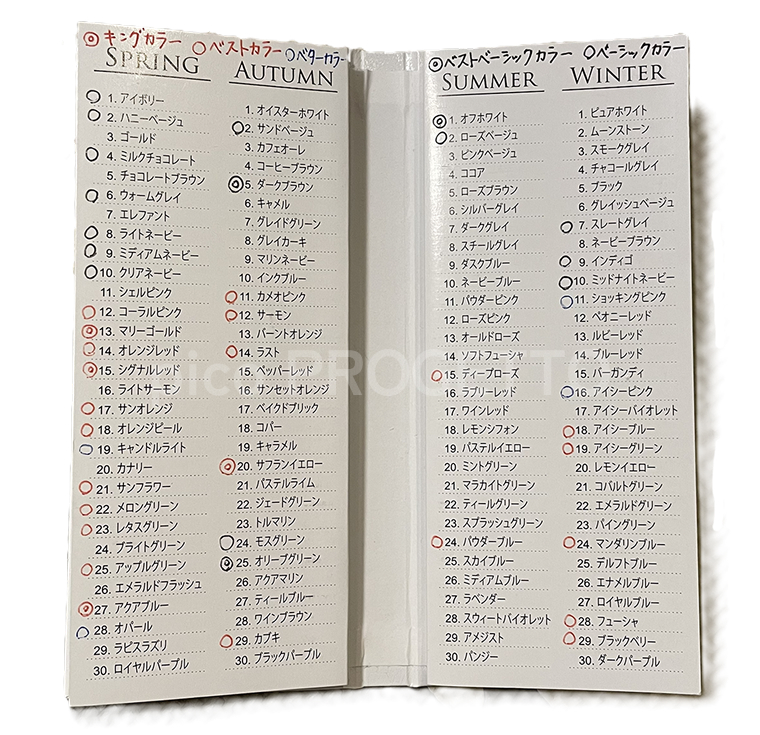 ◎キングカラー ○ベストカラー ○ベターカラー
SPRING
○ 1. アイボリー
○ 2. ハニーベージュ
3. ゴールド
○ 4. ミルクチョコレート
5. チョコレートブラウン
○ 6. ウォームグレイ
7. エレファント
○ 8. ライトネービー
○ 9. ミディアムネービー
○ 10. クリアネービー
11. シェルピンク
○ 12. コーラルピンク
◎ 13. マリーゴールド
○ 14. オレンジレッド
◎ 15. シグナルレッド
16. ライトサーモン
○ 17. サンオレンジ
○ 18. オレンジピール
○ 19. キャンドルライト
20. カナリー
○ 21. サンフラワー
○ 22. メロングリーン
○ 23. レタスグリーン
24. ブライトグリーン
○ 25. アップルグリーン
26. エメラルドフラッシュ
◎ 27. アクアブルー
○ 28. オパール
29. ラピスラズリ
30. ロイヤルパープル
AUTUMN
1. オイスターホワイト
○ 2. サンドベージュ
3. カフェオーレ
4. コーヒーブラウン
◎ 5. ダークブラウン
6. キャメル
7. グレイドグリーン
8. グレイカーキ
9. マリンネービー
10. インクブルー
○ 11. カメオピンク
○ 12. サーモン
13. バーントオレンジ
○ 14. ラスト
15. ペッパーレッド
16. サンセットオレンジ
17. ベイクドブリック
18. コパー
19. キャラメル
◎ 20. サフランイエロー
21. パステルライム
22. ジェードグリーン
23. トルマリン
○ 24. モスグリーン
◎ 25. オリーブグリーン
26. アクアマリン
27. ティールブルー
28. ワインブラウン
○ 29. カブキ
30. ブラックパープル
◎ベストベーシックカラー ○ベーシックカラー
SUMMER
◎ 1. オフホワイト
○ 2. ローズベージュ
3. ピンクベージュ
4. ココア
5. ローズブラウン
6. シルバーグレイ
7. ダークグレイ
8. スチールグレイ
9. ダスクブルー
10. ネービーブルー
11. パウダーピンク
12. ローズピンク
13. オールドローズ
14. ソフトフューシャ
○ 15. ディープローズ
16. ラブリーレッド
17. ワインレッド
18. レモンシフォン
19. パステルイエロー
20. ミントグリーン
21. マラカイトグリーン
22. ティールグリーン
23. スプラッシュグリーン
○ 24. パウダーブルー
25. スカイブルー
26. ミディアムブルー
27. ラベンダー
28. スウィートバイオレット
29. アメジスト
30. パンジー
WINTER
1. ピュアホワイト
2. ムーンストーン
3. スモークグレイ
4. チャコールグレイ
5. ブラック
6. グレイッシュベージュ
○ 7. スレートグレイ
8. ネービーブラウン
○ 9. インディゴ
○ 10. ミッドナイトネービー
○ 11. ショッキングピンク
12. ペオニーレッド
13. ルビーレッド
14. ブルーレッド
15. バーガンディ
○ 16. アイシーピンク
17. アイシーバイオレット
○ 18. アイシーブルー
○ 19. アイシーグリーン
20. レモンイエロー
21. コバルトグリーン
22. エメラルドグリーン
23. パイングリーン
○ 24. マンダリンブルー
25. デルフトブルー
26. エナメルブルー
27. ロイヤルブルー
○ 28. フューシャ
○ 29. ブラックベリー
30. ダークパープル